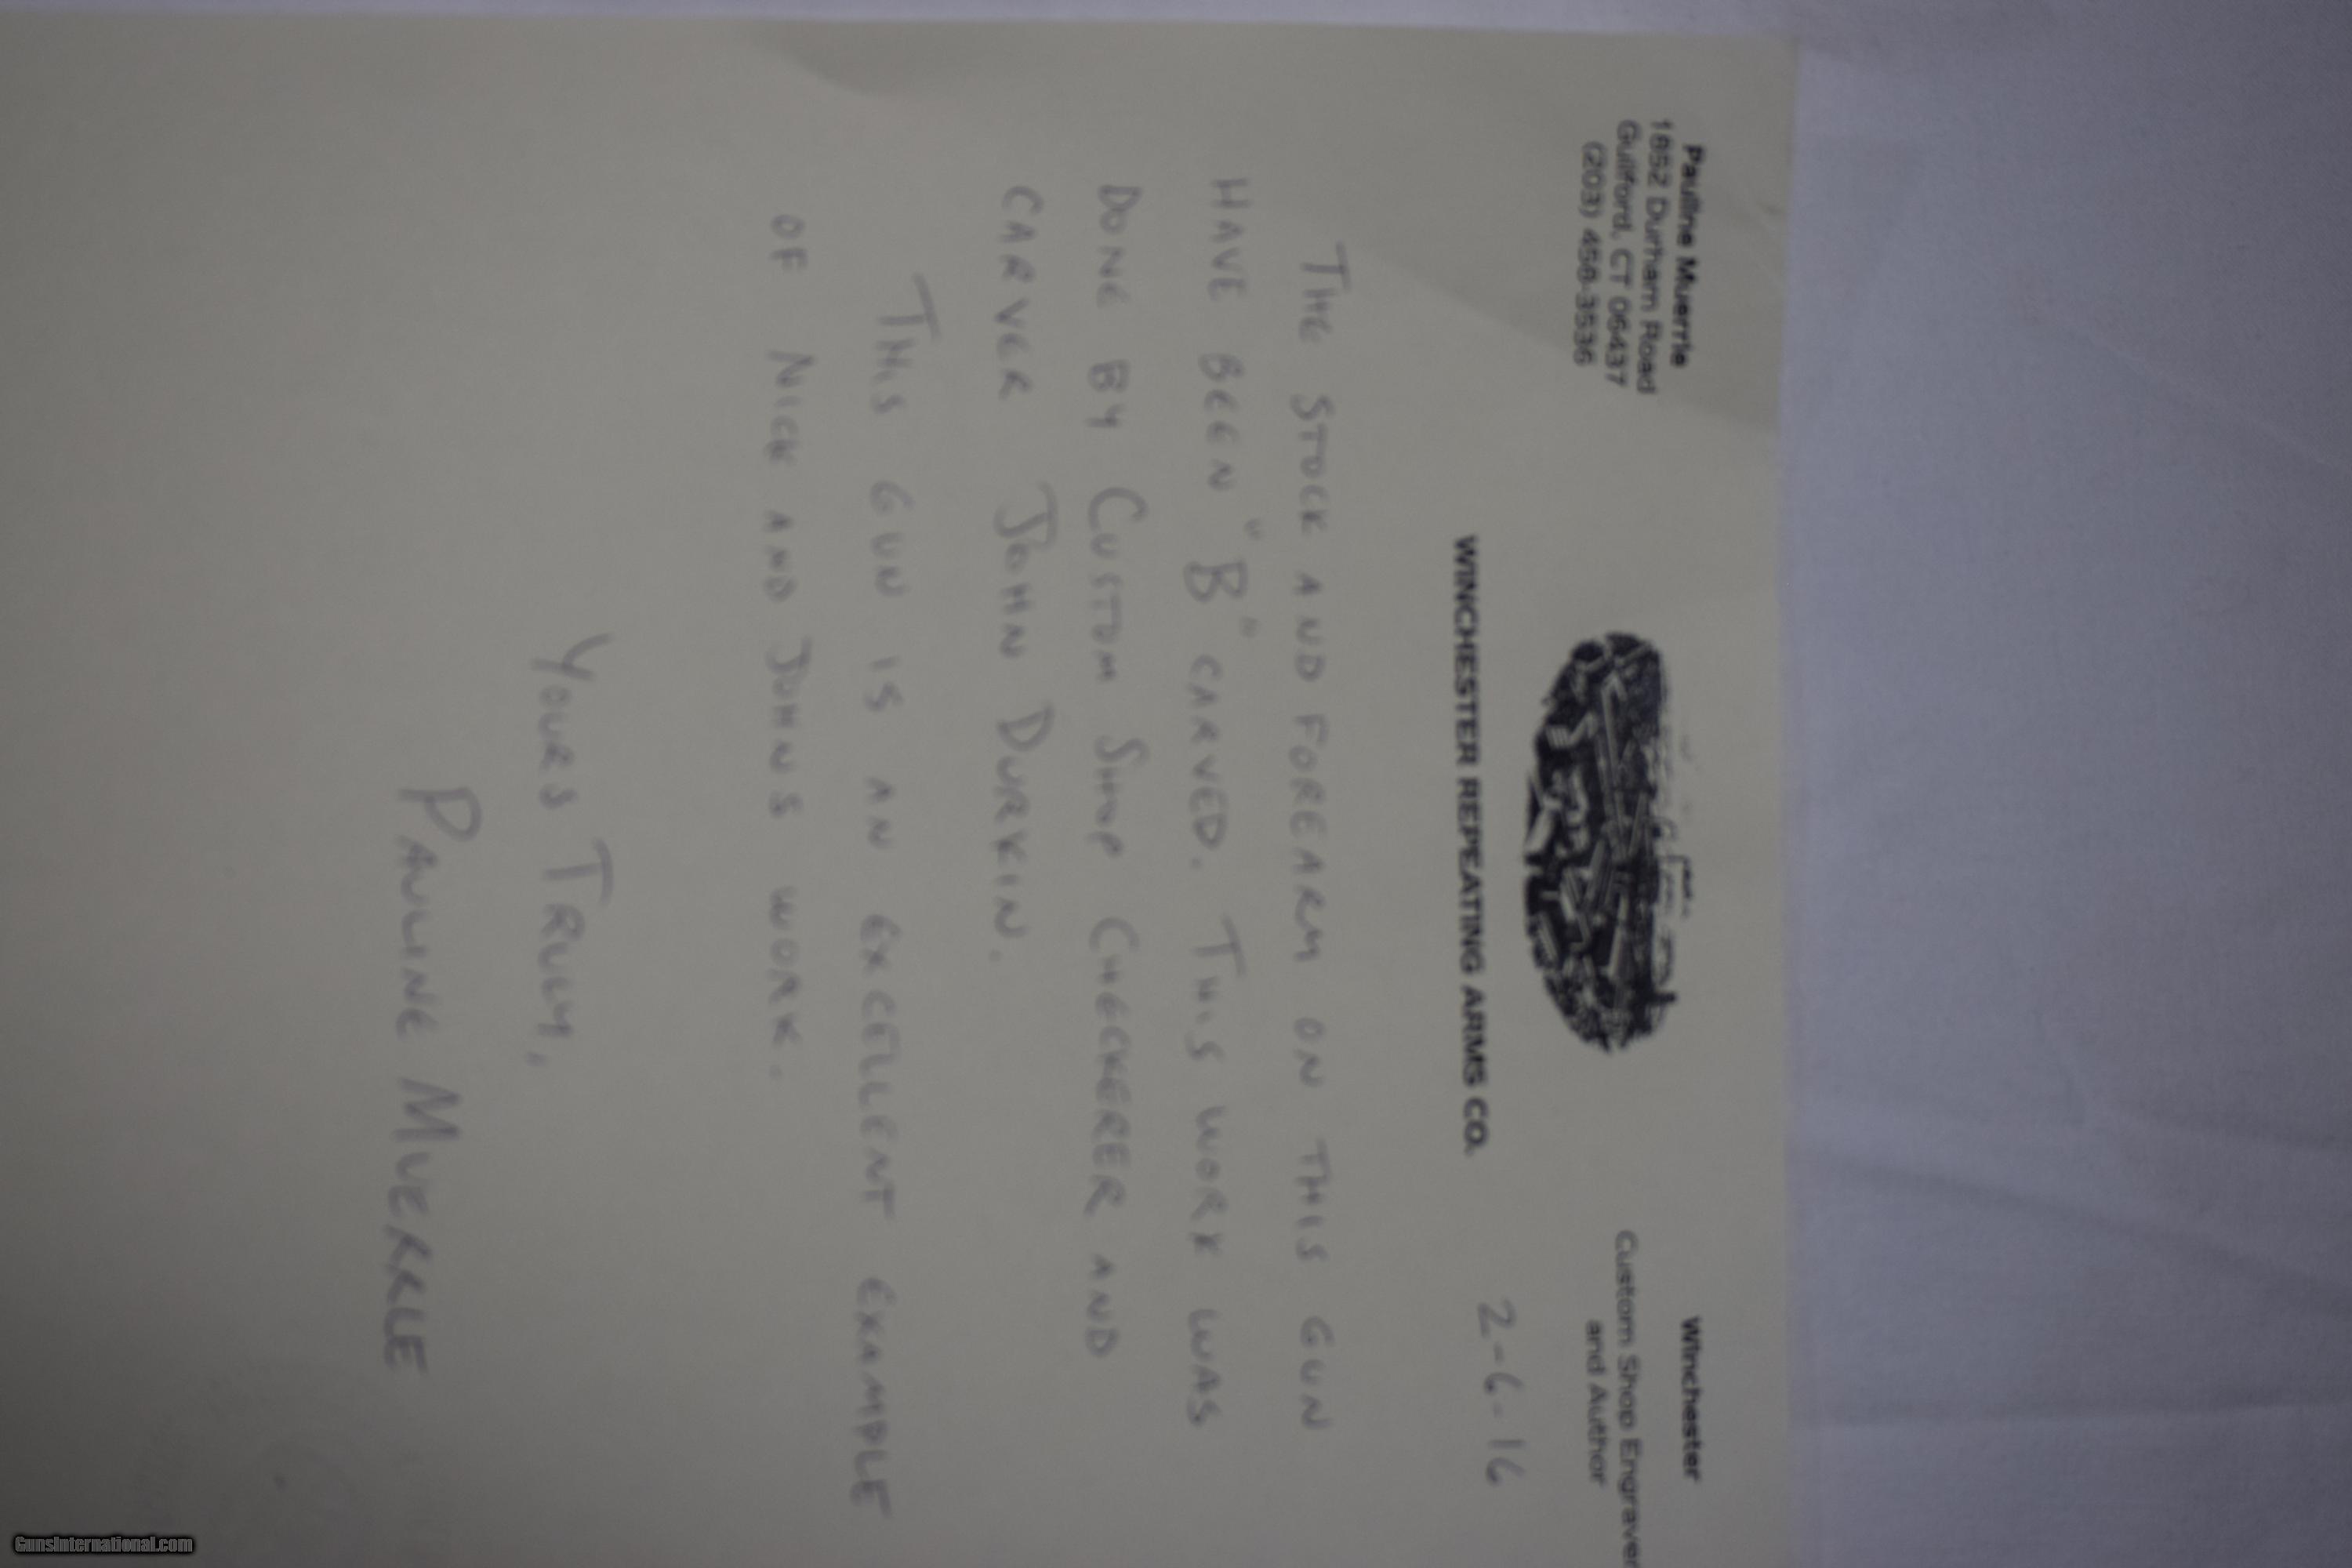 Pauline Muerrle
1852 Durham Road
Guilford, CT 06437
(203) 458-3536
Winchester
Custom Shop Engraver
and Author
WINCHESTER REPEATING ARMS CO.
2-6-16
THE STOCK AND FOREARM ON THIS GUN
HAVE BEEN "B" CARVED. THIS WORK WAS
DONE BY CUSTOM SHOP CHECKERER AND
CARVER JOHN DURKIN.
THIS GUN IS AN EXCELLENT EXAMPLE
OF NICK AND JOHNS WORK.
YOURS TRULY,
PAULINE MUERRLE
GunsInternational.com